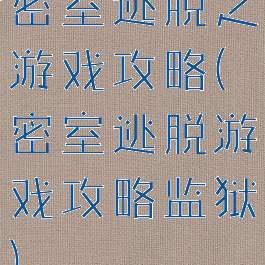 密室逃脱之
游戏攻略(
密室逃脱游
戏攻略监狱
)